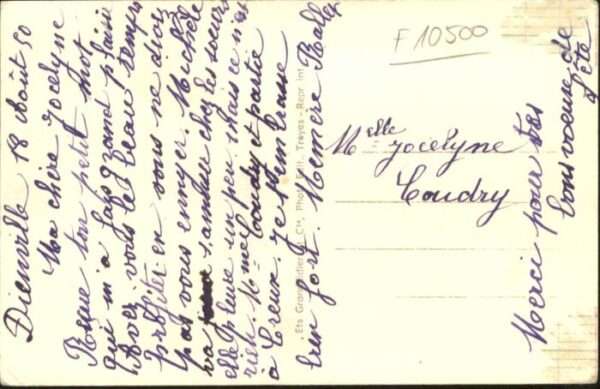 Dienville 18 Août 50
Ma chère Jocelyne
Reçue ton petit mot
qui m'a fais grand plaisir
Avez vous le beau temps
profiter en vous ne dioz
pas vous ennyer. Michèle
na tombée chez les soeurs
elle pleure un peu mais ce n'est
rien. Mme Coudry et partie
à Creux. Je t'embrasse
bien fort. Mémère
Ets Gran Cie, Pho Edit., Troyes - Repr. int.
F 10500
Melle Jocelyne
Coudry
Merci pour tes
bons voeux de
fête